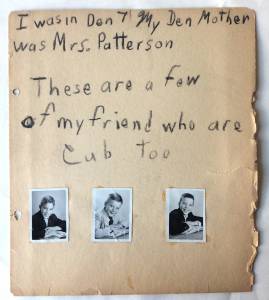 I was in Den 7 My Den Mother
was Mrs. Patterson
These are a few
of my friend who are
Cub too